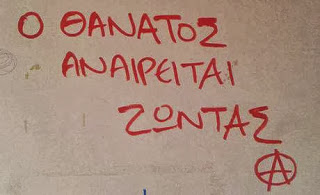 Ο ΘΑΝΑΤΟΣ
ΑΝΑΙΡΕΙΤΑΙ
ΖΩΝΤΑΣ
Ⓐ